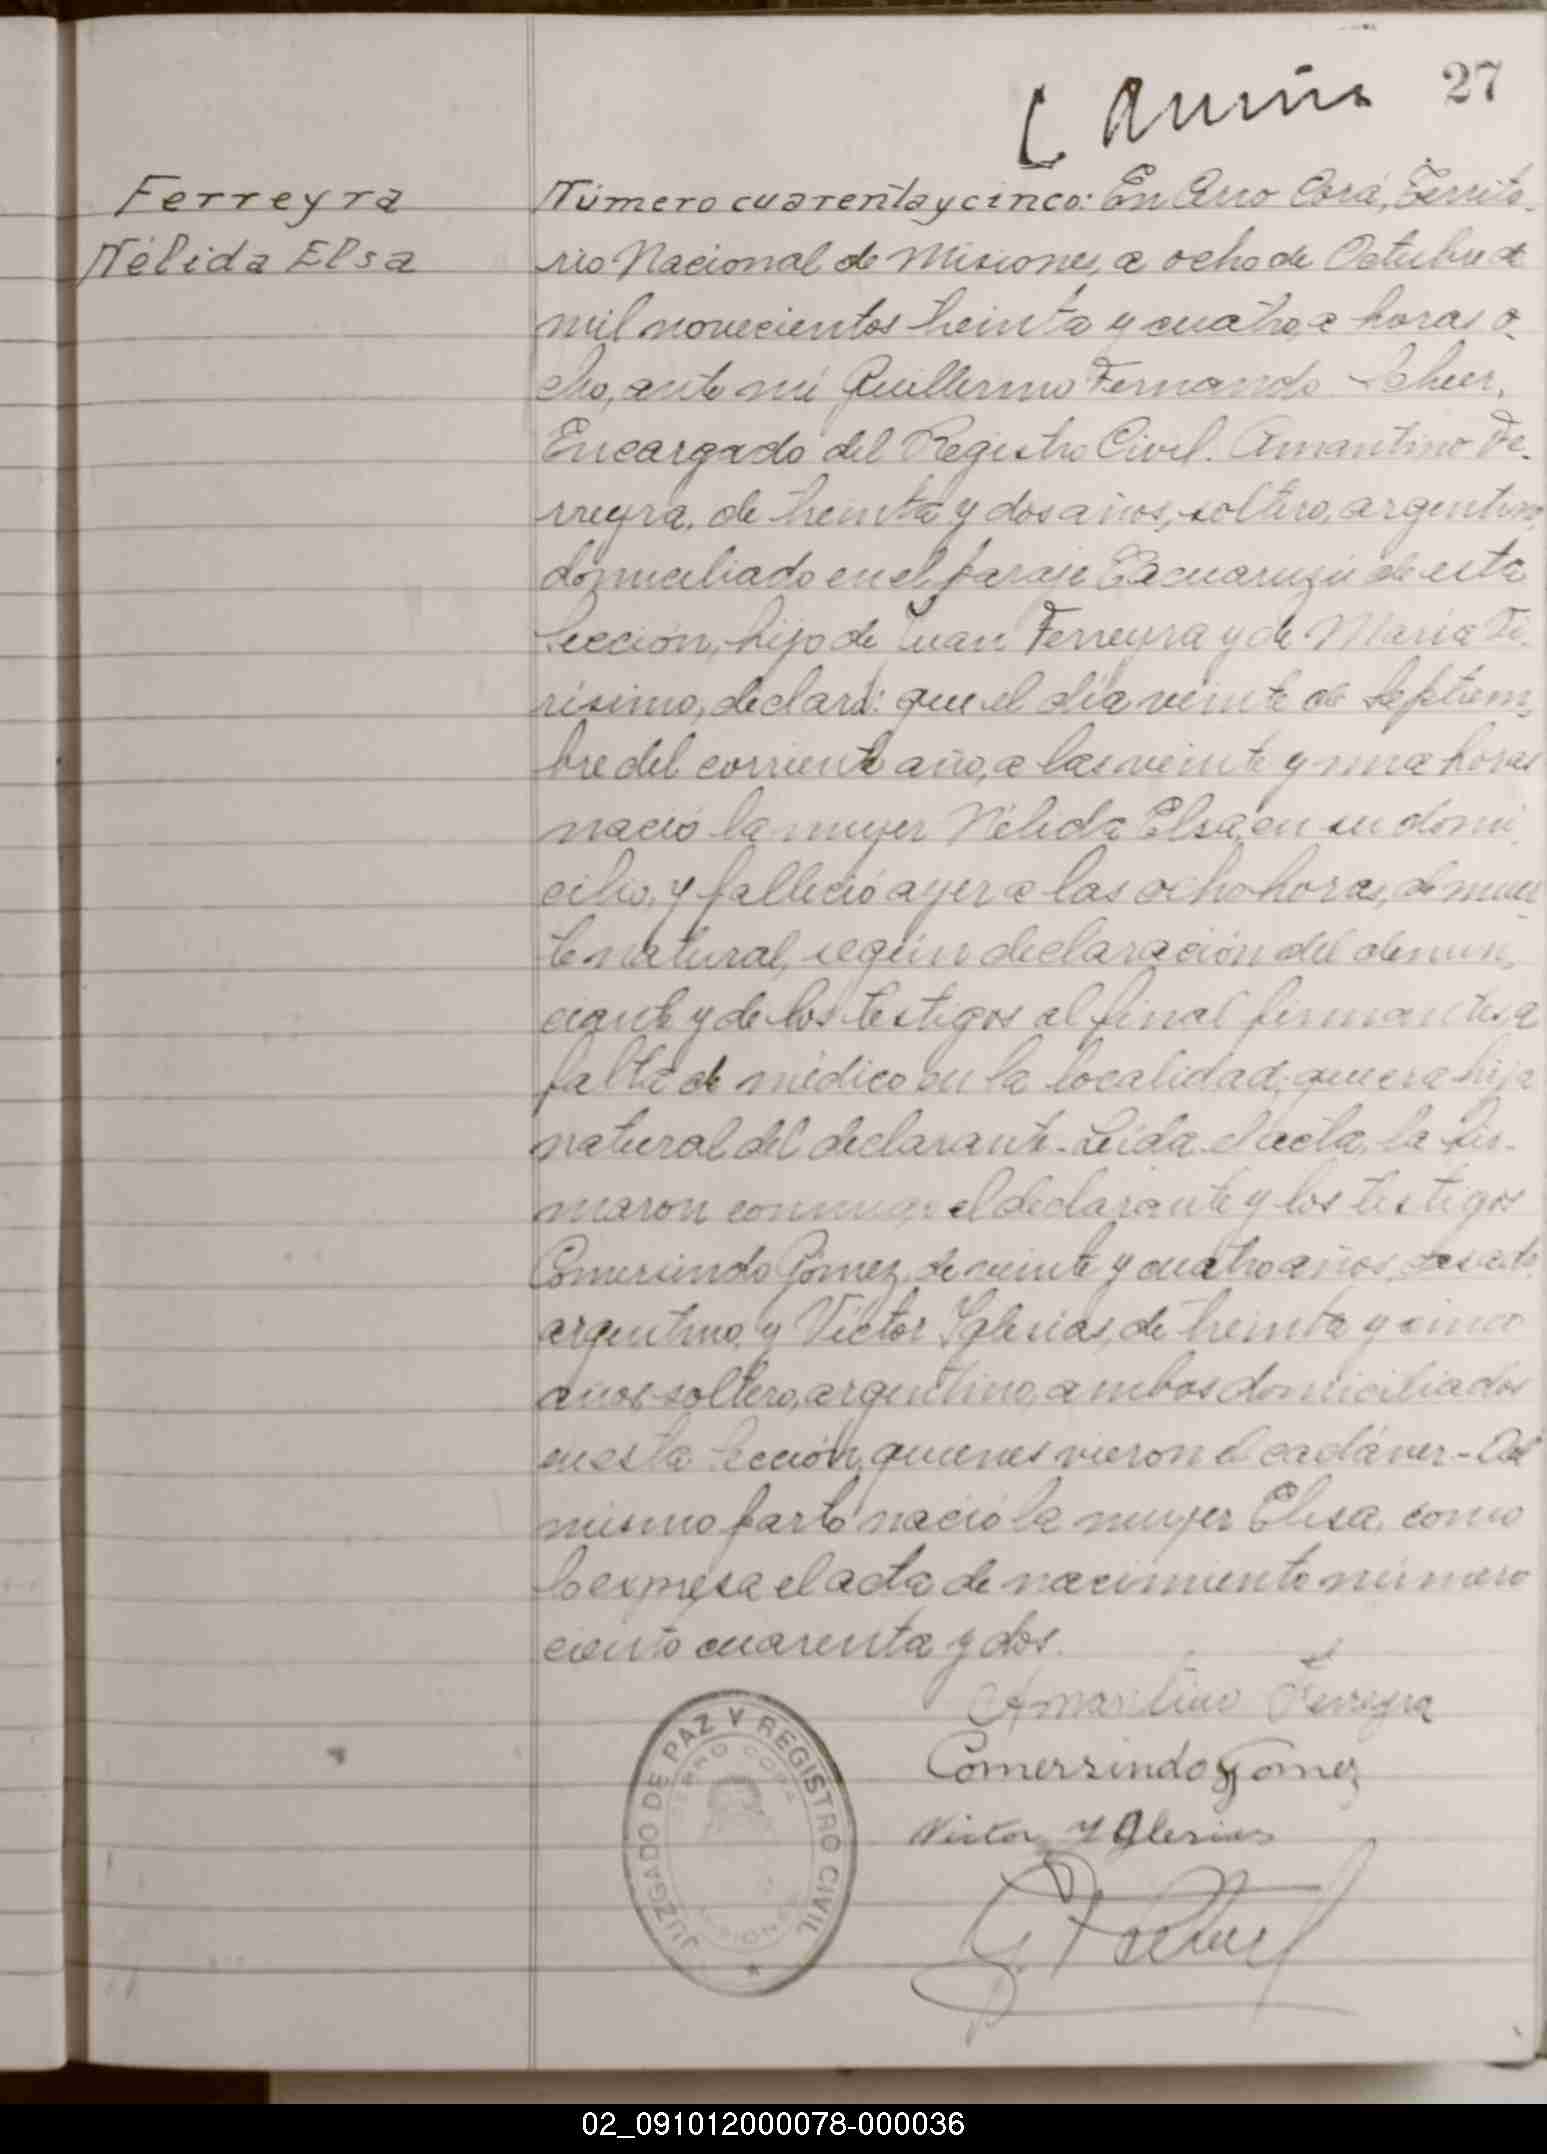 27
Ferreyra
Nélida Elsa
Número cuarenta y cinco: En Cerro Corá, Territo-
rio Nacional de Misiones, a ocho de Octubre de
mil novecientos treinta y cuatro, a horas o-
cho, ante mi Guillermo Fernando Scheer,
Encargado del Registro Civil. Amantino Fe-
rreyra, de treinta y dos años, soltero, argentino,
domiciliado en el paraje de esta
Sección, hijo de Juan Ferreyra y de Maria
declaró: que el día veinte de Septiem-
bre del corriente año, a las veinte y una horas
nació la mujer Nélida Elsa, en su domi-
cilio, y falleció ayer a las ocho horas, de muer-
te natural, según declaración del denun-
ciante y de los testigos al final firmantes a
falta de médico en la localidad; que era hija
natural del declarante. Leída el acta, la fir-
maron conmigo el declarante y los testigos
Comersindo Gómez, de veinte y cuatro años, casado,
argentino, y Víctor Iglesias, de treinta y cinco
años, soltero, argentino, ambos domiciliados
en esta Sección, quienes vieron el cadáver.- Del
mismo parto nació la mujer Elisa, como
lo expresa el acta de nacimiento número
ciento cuarenta y dos.
Amantino Ferreyra
Comerzindo Gomez
Victor Yglesias
JUZGADO DE PAZ Y REGISTRO CIVIL
CERRO CORA
MISIONES
02_091012000078-000036